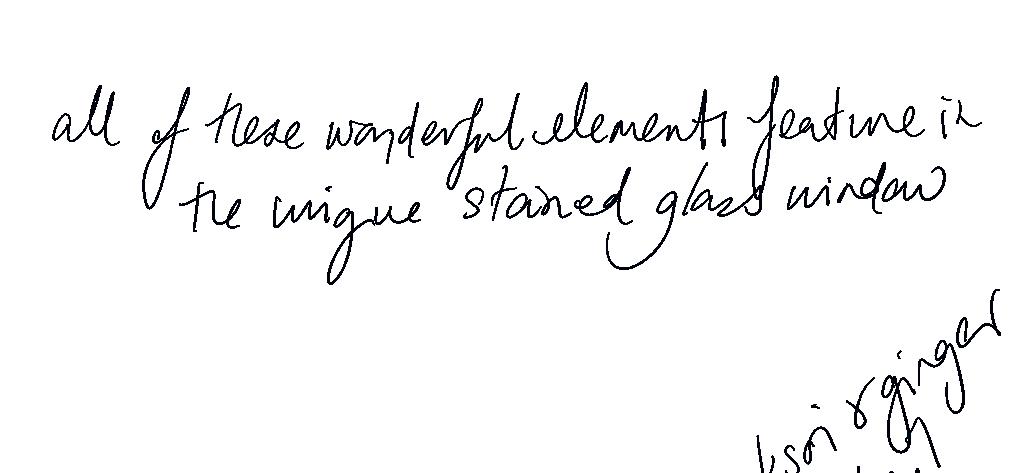 all of these wonderful elements feature in
the unique stained glass window
ginger